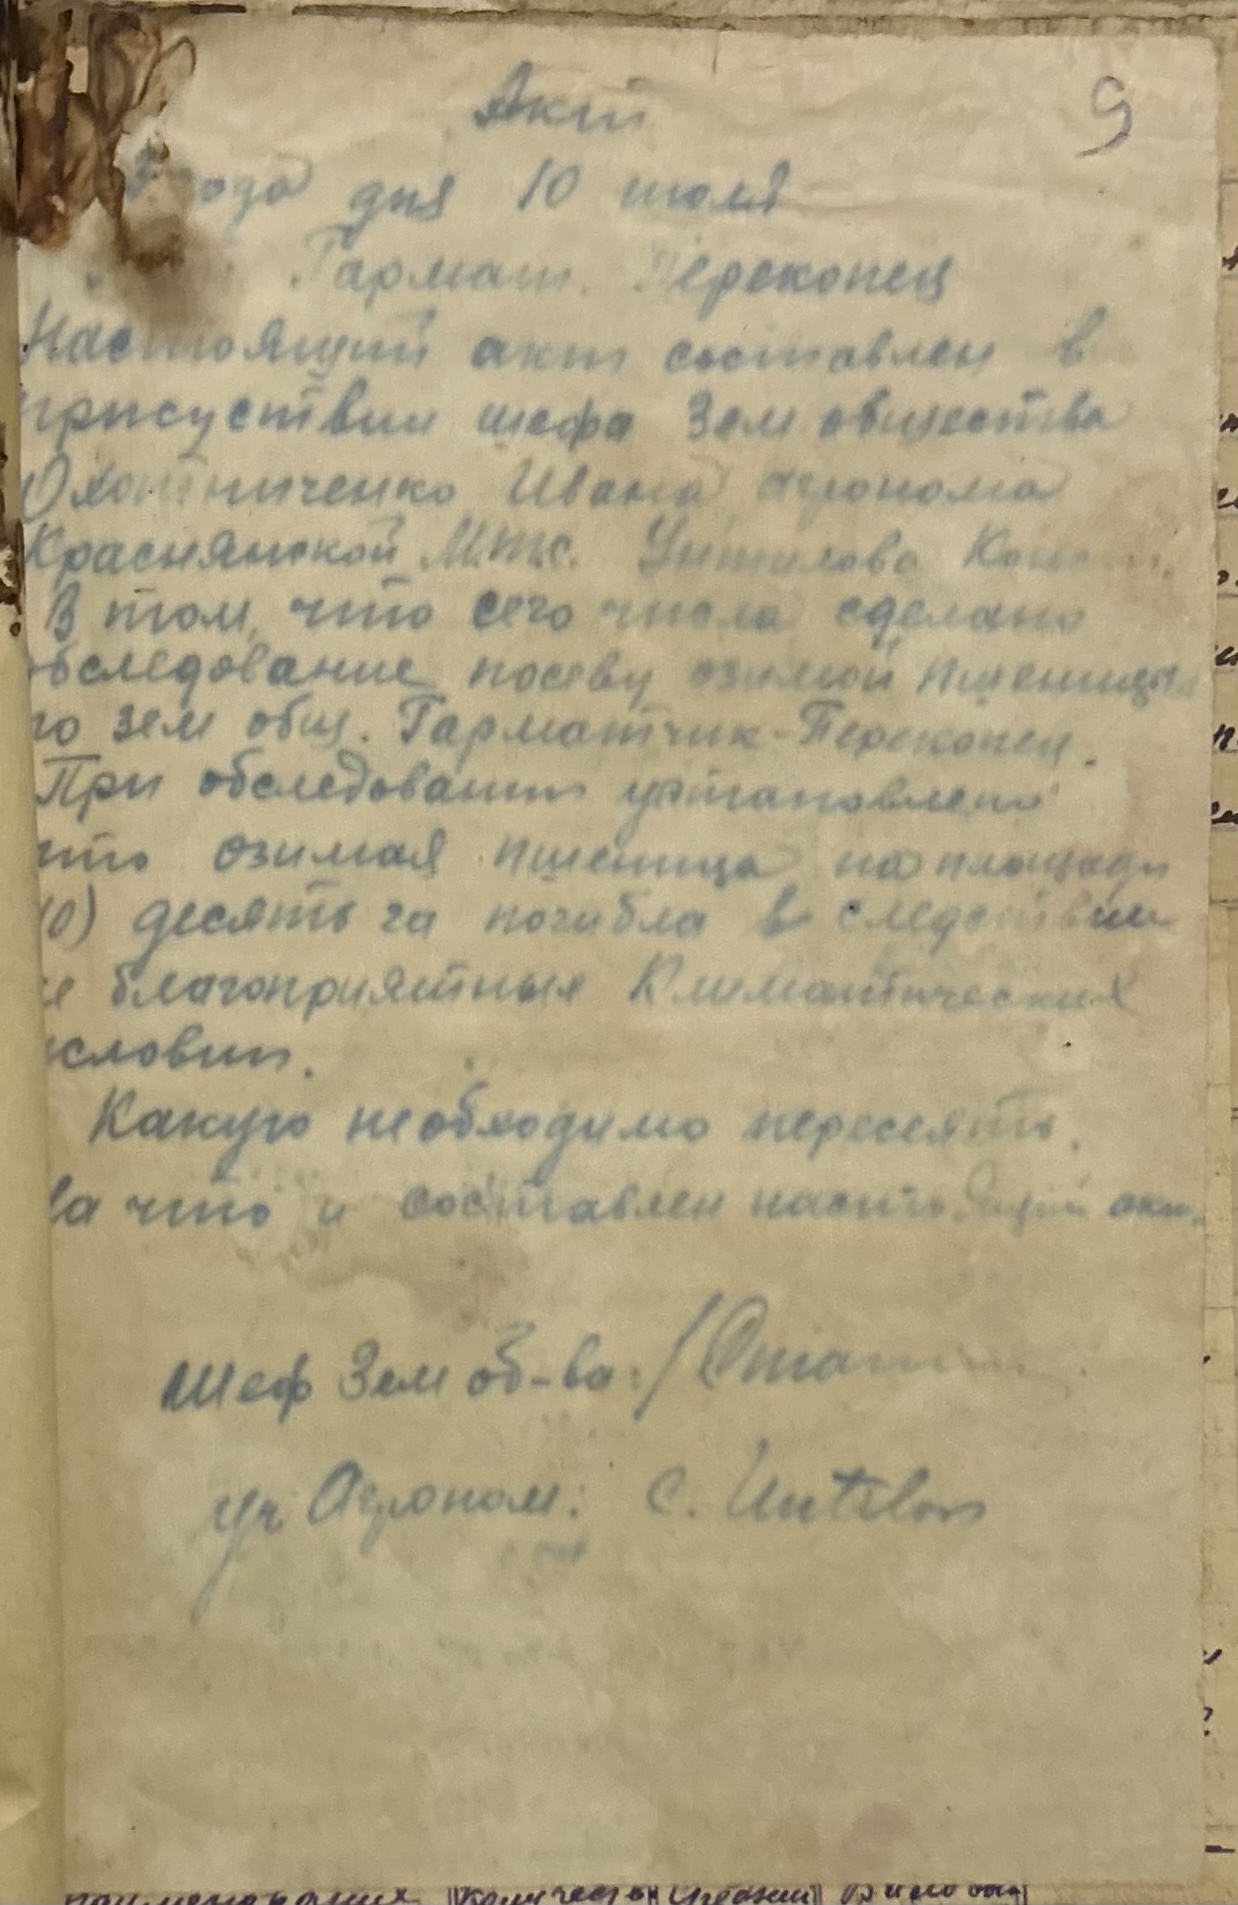 Акт
9
года дня 10 июля
Гармат. Перекопец
Настоящий акт составлен в
присуствии шефа Зем общества
Охотниченко Ивана агронома
Краснянской М.т.с. Унтилова
В том, что сего числа сделано
обследование посеву озимой пшеницы
по зем общ. Гарматчик-Перекопец.
При обследовании установлено
что озимая пшеница на площади
10) десять га погибла в следствии
не благоприятных Климатических
условии.
Какую необходимо пересеять.
На что и составлен настоящий акт.
шеф Зем об-ва:
уч Агроном: C. Untilov
наименование количество средний